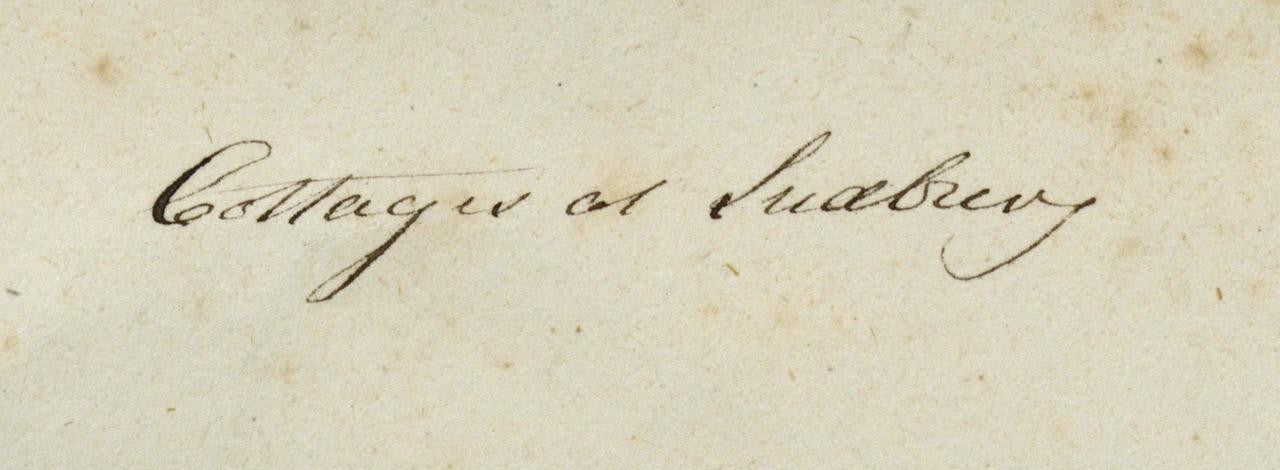 Cottages at Sudbury